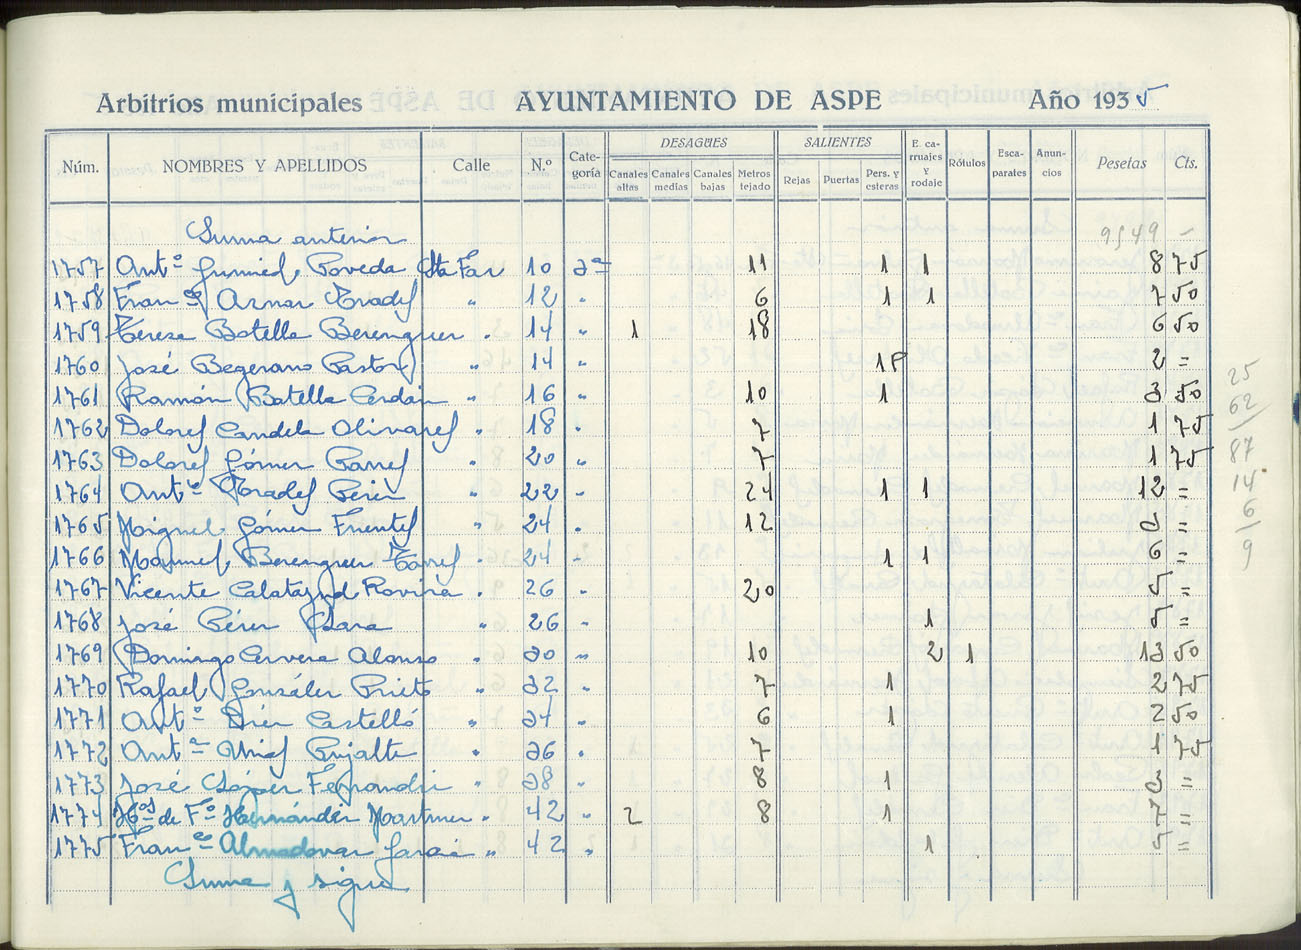 Arbitrios municipales AYUNTAMIENTO DE ASPE Año 1935
Núm. NOMBRES Y APELLIDOS Calle N.º Cate-goría DESAGÜES Canales altas Canales medias Canales bajas Metros tejado SALIENTES Rejas Puertas Pers. y esteras E. ca-rruajes y rodaje Rótulos Esca-parates Anun-cios Pesetas Cts.
Suma anterior 9549 -
1757 Antº Gumiel Poveda Sta Faz 10 3ª 11 1 1 8 75
1758 Franco Aznar Prades " 12 " 6 1 1 7 50
1759 Teresa Botella Berenguer " 14 " 1 18 6 50
1760 José Begerano Pastor " 14 " 1P 2 =
1761 Ramón Botella Cerdán " 16 " 10 1 3 50
1762 Dolores Candela Olivares " 18 " 7 1 75
1763 Dolores Gómez Parres " 20 " 7 1 75
1764 Antº Prades Pérez " 22 " 24 1 1 12 =
1765 Miguel Gómez Fuentes " 24 " 12 3 =
1766 Manuel Berenguer Torres " 24 " 1 1 6 =
1767 Vicente Calatayud Rovira " 26 " 20 5 =
1768 José Pérez " 26 " 1 5 =
1769 Domingo Cervera Alonso " 30 " 10 2 1 13 50
1770 Rafael González Prieto " 32 " 7 1 2 75
1771 Antº Díez Castelló " 34 " 6 1 2 50
1772 Antª Pujalte " 36 " 7 1 75
1773 José López Ferrandiz " 38 " 8 1 3 =
1774 Hos de Fº Hernández Martinez " 42 " 2 8 1 7 =
1775 Franco Almodovar García " 42 " 1 5 =
Suma y sigue
25
62
87
14
6
9